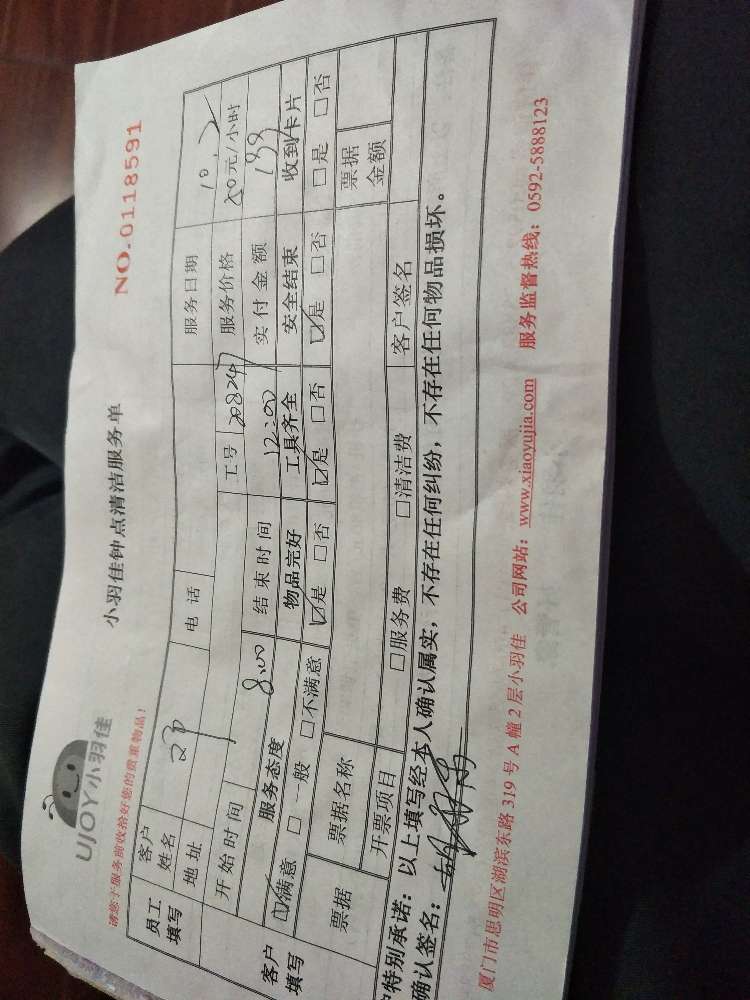 UJOY小羽佳
小羽佳钟点清洁服务单
请您于服务前收拾好您的贵重物品！
NO.0118591
员工填写
客户姓名
电话
服务日期 10.2
地址
工号 20824
服务价格 20元/小时
开始时间 8:00
结束时间 12:00
实付金额
客户填写
服务态度 物品完好 工具齐全 安全结束 收到卡片
☑满意 □一般 □不满意 ☑是 □否 ☑是 □否 ☑是 □否 □是 □否
票据
票据名称
票据金额
开票项目 □服务费 □清洁费
客户签名
户特别承诺：以上填写经本人确认属实，不存在任何纠纷，不存在任何物品损坏。
确认签名：
厦门市思明区湖滨东路319号A幢2层小羽佳 公司网站：www.xiaoyujia.com 服务监督热线：0592-5888123